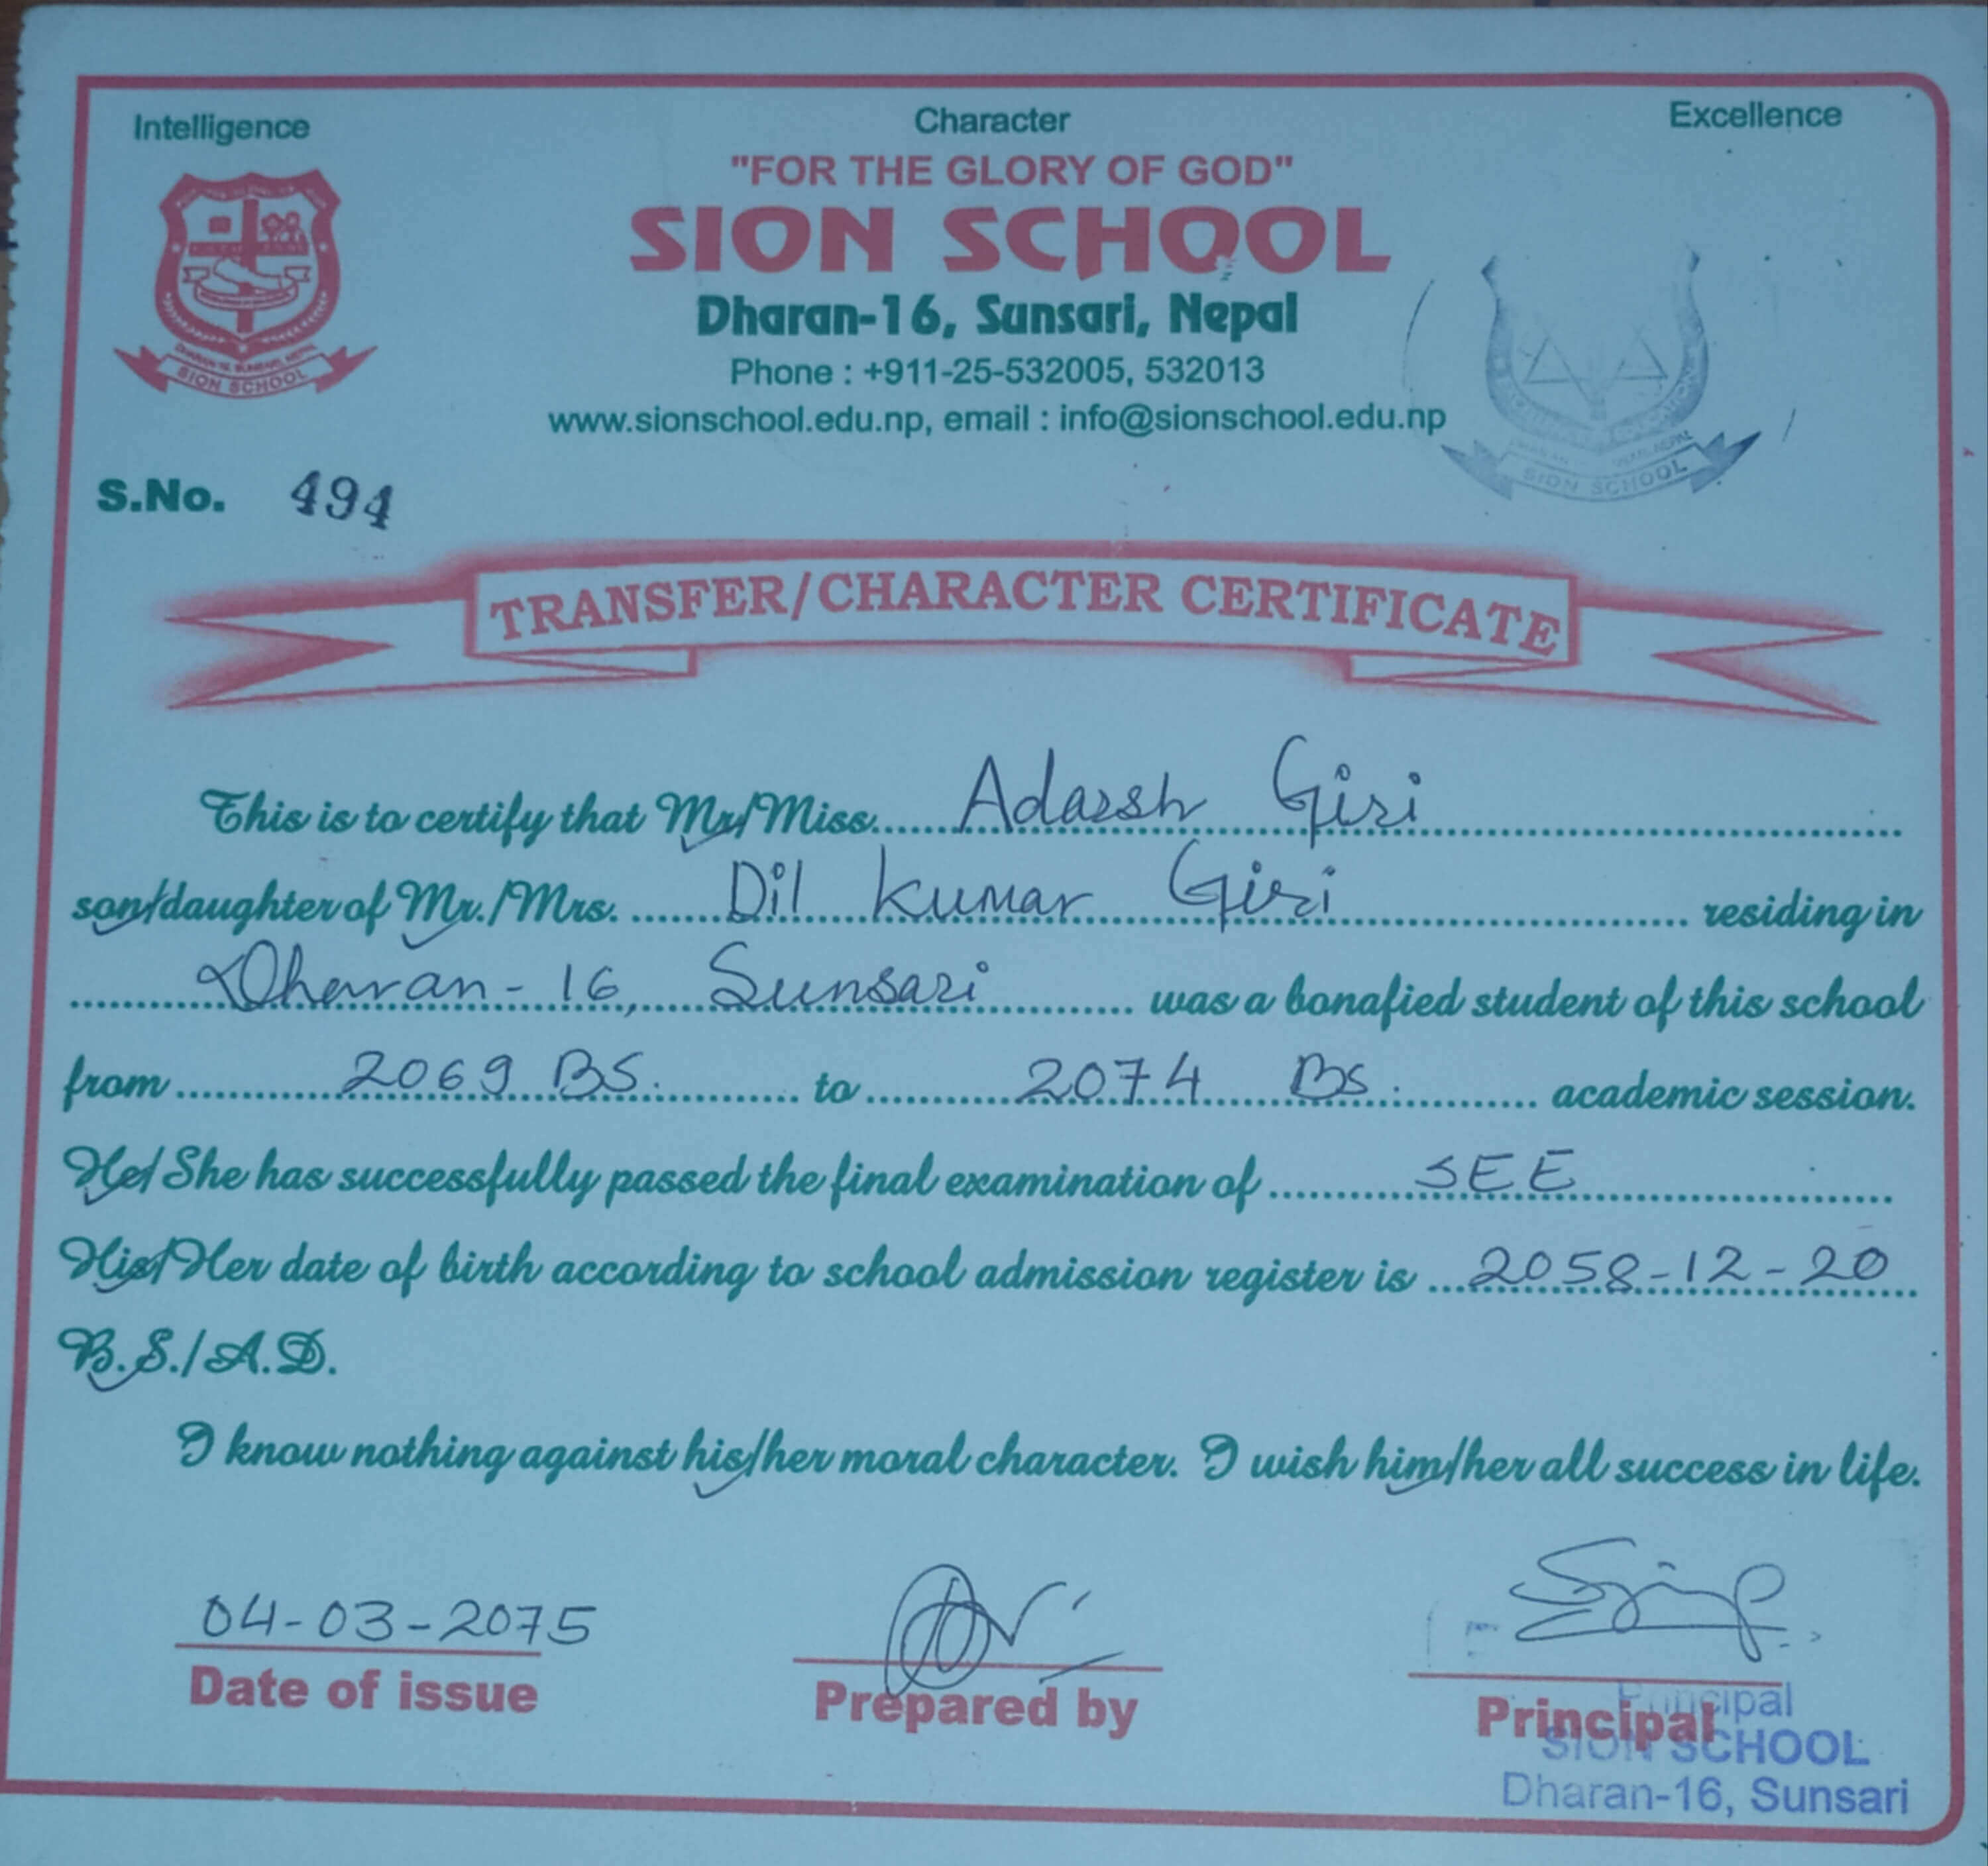 Intelligence Character Excellence
"FOR THE GLORY OF GOD"
SION SCHOOL
Dharan-16, Sunsari, Nepal
Phone : +911-25-532005, 532013
www.sionschool.edu.np, email : info@sionschool.edu.np
SION SCHOOL
SION SCHOOL
S.No. 494
TRANSFER/CHARACTER CERTIFICATE
This is to certify that Mr/Miss Adarsh Giri
son/daughter of Mr./Mrs. Dil Kumar Giri residing in
Dharan-16, Sunsari was a bonafied student of this school
from 2069 BS. to 2074 BS. academic session.
He/She has successfully passed the final examination of SEE
His/Her date of birth according to school admission register is 2058-12-20
B.S./A.D.
I know nothing against his/her moral character. I wish him/her all success in life.
04-03-2075
Date of issue Prepared by Principal
Principal
SION SCHOOL
Dharan-16, Sunsari